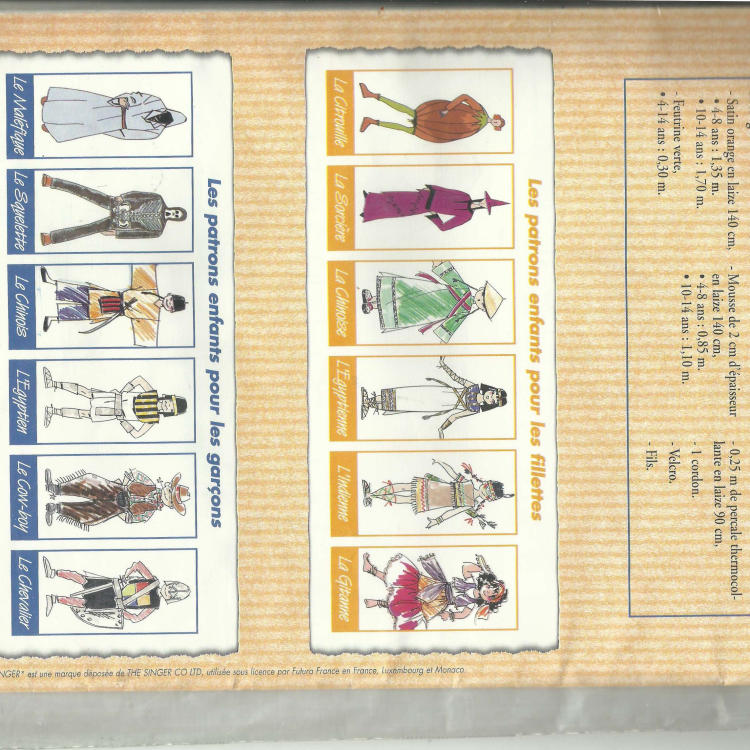 - Satin orange en laize 140 cm,
• 4-8 ans : 1,35 m.
• 10-14 ans : 1,70 m.
- Feutrine verte,
• 4-14 ans : 0,30 m.
- Mousse de 2 cm d'épaisseur
en laize 140 cm,
• 4-8 ans : 0,85 m.
• 10-14 ans : 1,10 m.
- 0,25 m de percale thermocol-
lante en laize 90 cm,
- 1 cordon.
- Velcro.
- Fils.
Les patrons enfants pour les fillettes
La Citrouille
La Sorcière
La Chinoise
L'Egyptienne
L'Indienne
La Gitanne
Les patrons enfants pour les garçons
Le Maléfique
Le Squelette
Le Chinois
L'Egyptien
Le Cow-boy
Le Chevalier
est une marque déposée de THE SINGER CO LTD, utilisée sous licence par Futura France en France, Luxembourg et Monaco.